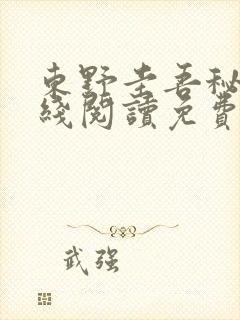 東野圭吾秘
綫閱讀免費
武强